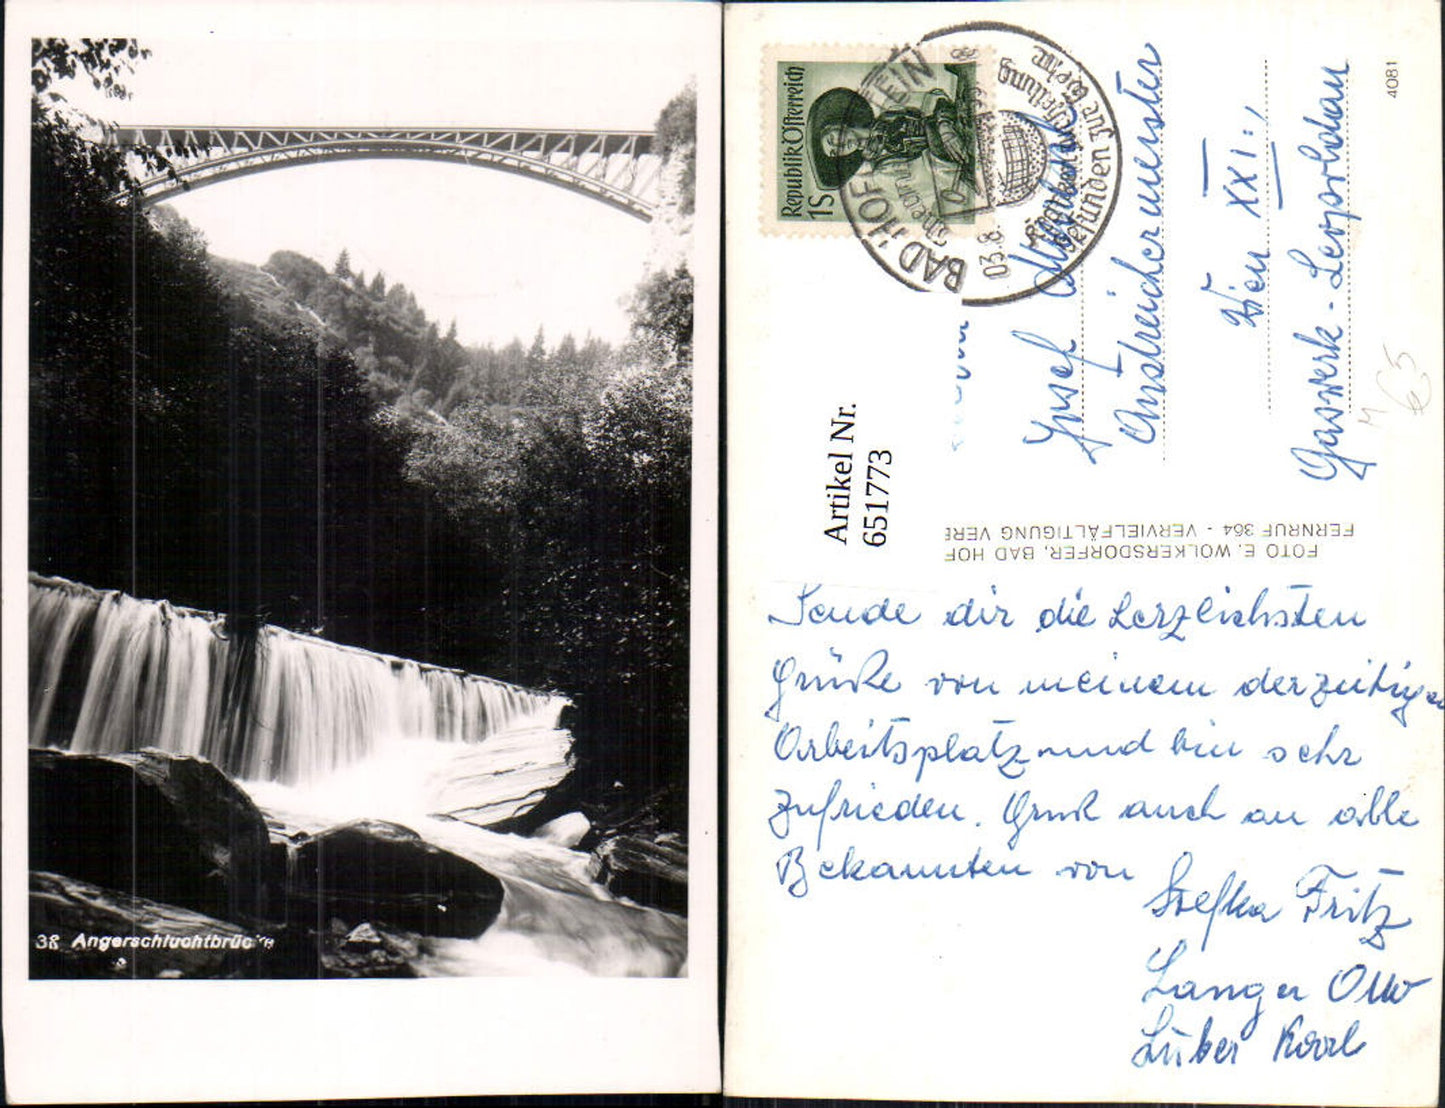 38 Angerschluchtbrücke
Republik Österreich
1S
BAD HOFGASTEIN
03.8.
4081
Josef
Anstreichermeister
Wien XXI.,
Gaswerk - Leopoldau
Artikel Nr.
651773
FOTO E. WOLKERSDORFER, BAD HOF
FERNRUF 364 - VERVIELFÄLTIGUNG VERB
Sende dir die herzlichsten
Grüße von meinem derzeitigen
Arbeitsplatz und bin sehr
zufrieden. Gruß auch an alle
Bekannten von
Fritz
Langer Otto
Karl